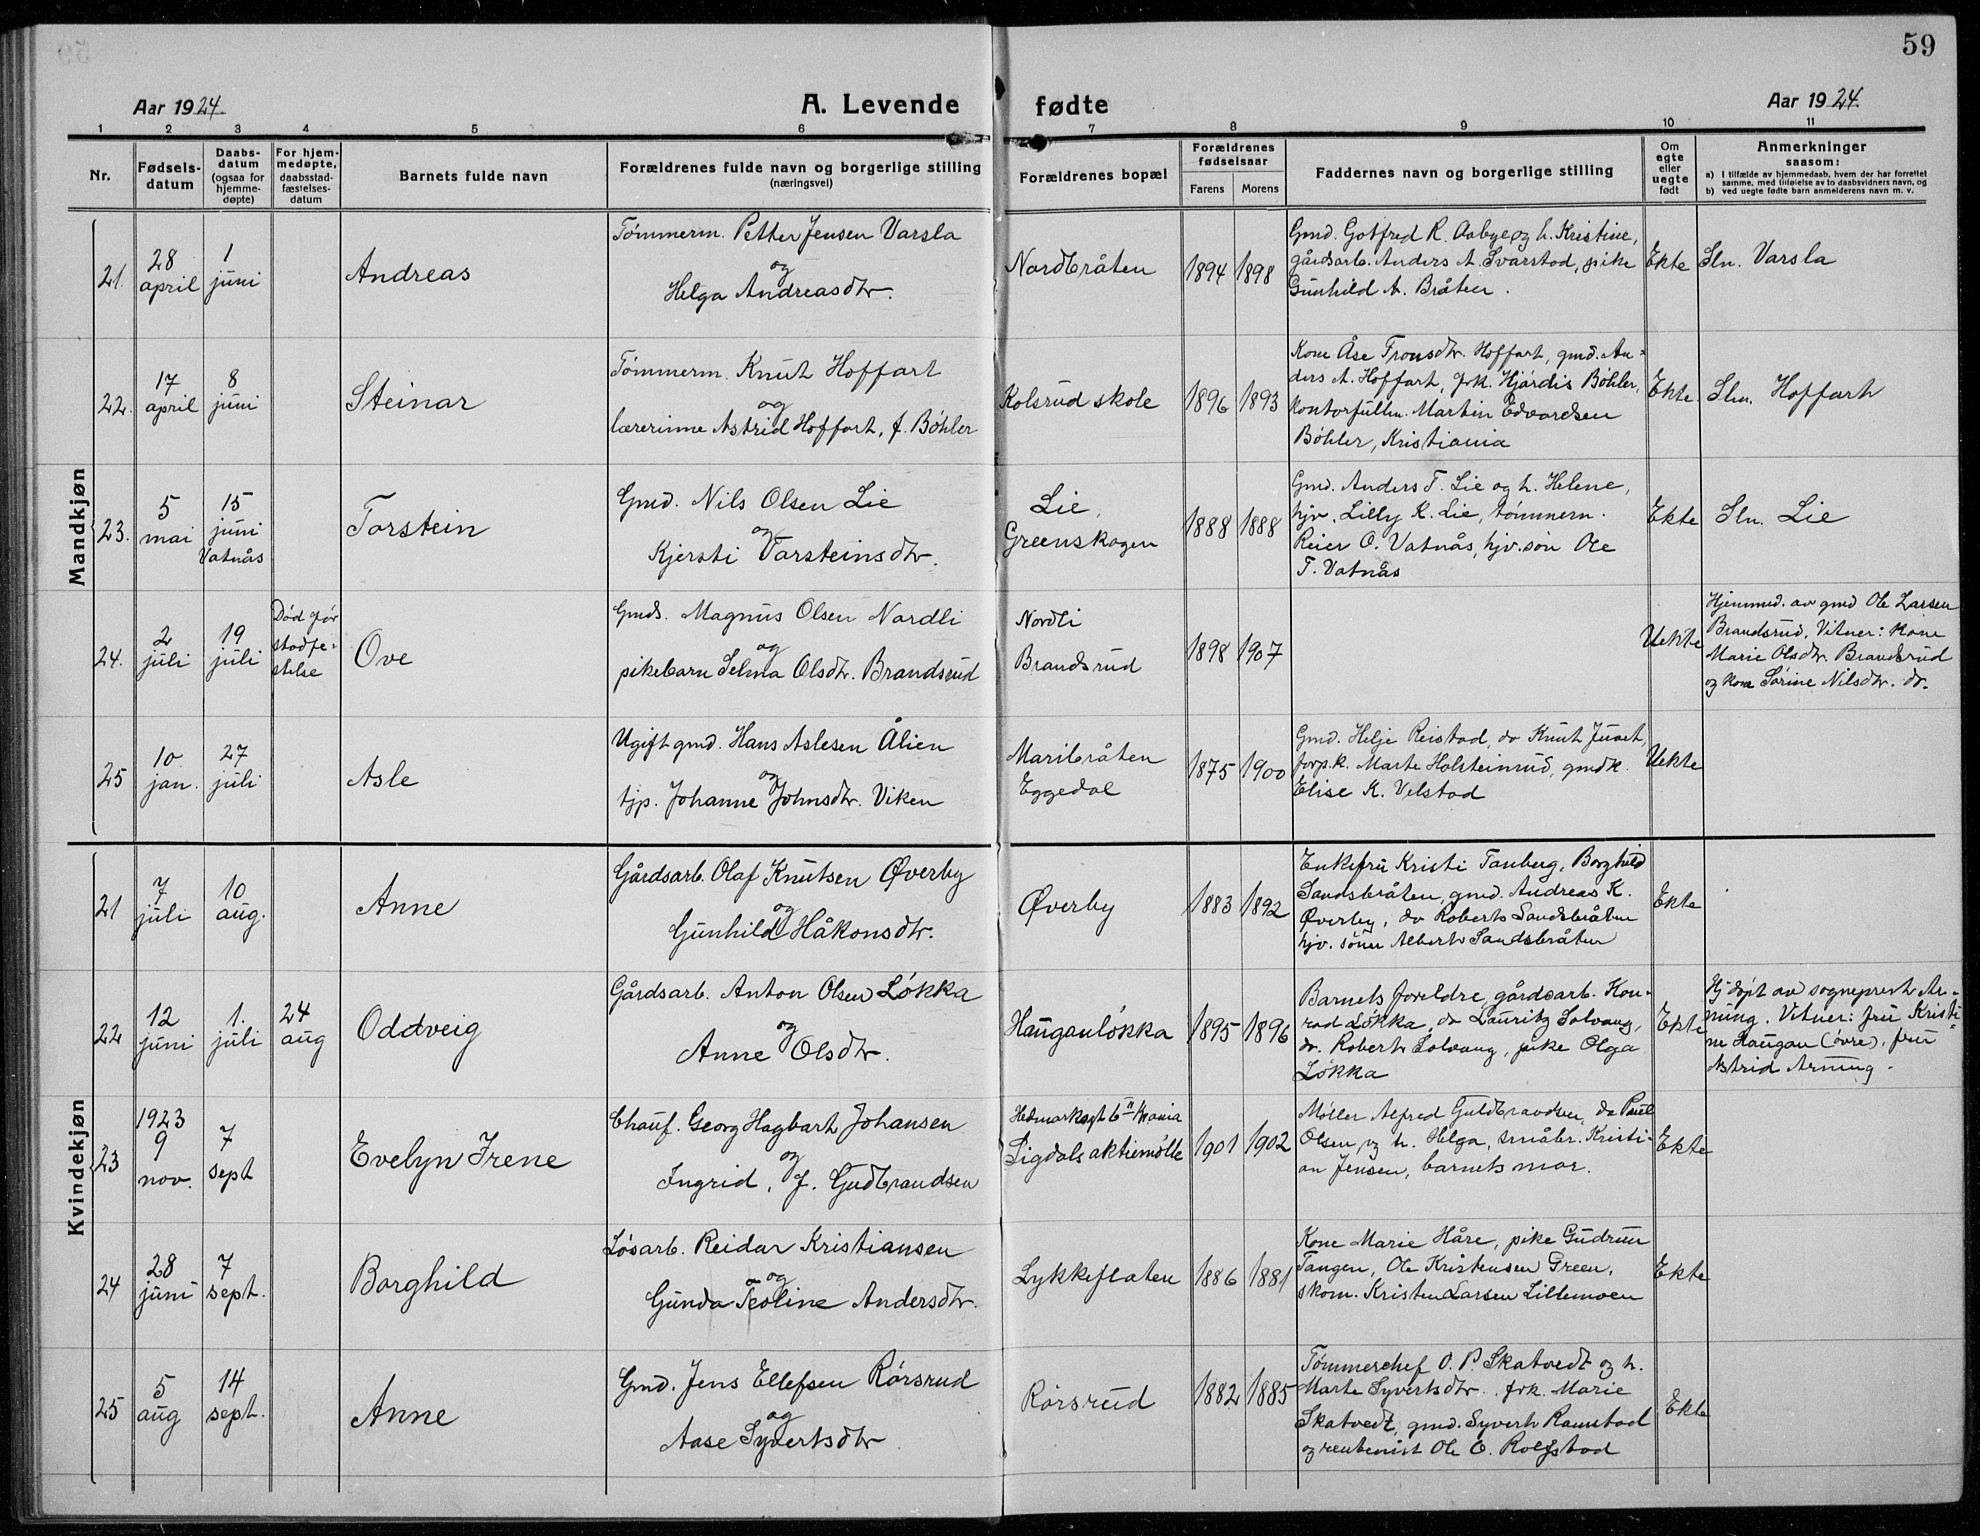 59
Aar 1924.
A. Levende fødte
Aar 1924.
1 2 3 4 5 6 7 8 9 10 11
Nr.
Fødselsdatum
Daabsdatum (ogsaa for hjemmedøpte)
For hjemmedøpte, daabsstadfæstelsesdatum
Barnets fulde navn
Forældrenes fulde navn og borgerlige stilling
(næringsvei)
Forældrenes bopæl
Forældrenes fødselsaar
Farens
Morens
Faddernes navn og borgerlige stilling
Om egte eller uegte født
Anmerkninger
saasom:
a) I tilfælde av hjemmedaab, hvem der har forrettet
samme, med tilføielse av to daabsvidners navn, og
b) ved uegte fødte barn anmelderens navn m. v.
Mandkjøn
21.
28 april
1 juni
Andreas
Tømmerm. Petter Jensen Varsla
og
Helga Andreasdtr.
Nordbråten
1894 1898
Gmd. Gotfred R. Aabye og h. Kristine,
gårdsarb. Anders A. Svarstad, pike
Gunhild A. Bråten.
Ekte
Sln. Varsla
22.
17 april
8 juni
Steinar
Tømmerm. Knut Hoffart
og
lærerinne Astrid Hoffart, f. Bøhler
Kolsrud skole
1896 1893
Kone Åse Tronsdtr. Hoffart, gmd. An-
ders A. Hoffart, frk. Hjørdis Bøhler,
kontorfullm. Martin Edvardsen
Bøhler, Kristiania
Ekte
Sln. Hoffart
23.
5 mai
15 juni
Vatnås
Torstein
Gmd. Nils Olsen Lie
og
Kjersti Torsteinsdtr.
Lie,
Greenskogen
1888 1888
Gmd. Anders T. Lie og h. Helene,
hjv. Lilly K. Lie, tømmerm.
Reier O. Vatnås, hjv. søn Ole
T. Vatnås
Ekte
Sln. Lie
24.
2 juli
19 juli
Død før
stadfe-
stelse
Ove
Gmds. Magnus Olsen Nordli
og
pikebarn Selma Olsdtr. Brandsrud
Nordli
Brandsrud
1898 1907
Uekte
Hjemmed. av gmd Ole Larsen
Brandsrud. Vitner: Kone
Marie Olsdtr. Brandsrud
og kone Sørine Nilsdtr. do.
25
10 jan.
27 juli
Asle
Ugift gmd. Hans Aslesen Ålien
og
tjp. Johanne Johnsdtr. Viken
Maribråten
Eggedal
1875 1900
Gmd. Helje Reistad, do Knut Juvet,
forp.k. Marte Holsteinrud, gmdk.
Elise K. Velstad
Uekte
Kvindekjøn
21
7 juli
10 aug.
Anne
Gårdsarb. Olaf Knutsen Øverby
og
Gunhild Håkonsdtr.
Øverby
1883 1892
Enkefru Kristi Tanberg, Borghild
Sandsbråten, gmd. Andreas K.
Øverby, do Robert Sandsbråten
hjv. sønn Albert Sandsbråten
Ekte
22
12 juni
1. juli
24 aug
Oddveig
Gårdsarb. Anton Olsen Løkka
og
Anne Olsdtr.
Hauganløkka
1895 1896
Barnets foreldre, gårdsarb. Kon-
rad Løkka, do Lauritz Solvang,
do. Robert Solvang, pike Olga
Løkka
Ekte
Hj.døpt av sogneprest Ar-
ning. Vitner: fru Kristi-
ne Haugan (øvre), fru
Astrid Arning.
23
1923
9 nov.
7 sept
Evelyn Irene
Chauf. Georg Hagbart Johansen
og
Ingrid, f. Gudbrandsen
Sigdals aktiemølle
1901 1902
Møller Alfred Guldbrandsen, do Paul
Olsen og h. Helga, småbr. Kristi-
an Jensen, barnets mor.
Ekte
24
28 juni
7 sept.
Borghild
Løsarb. Reidar Kristiansen
og
Gunda Teoline Andersdtr.
Lykkeflaten
1886 1881
Kone Marie Håre, pike Gudrun
Tangen, Ole Kristensen Green,
skom. Kristen Larsen Lillemoen
Ekte
25
5 aug
14 sept.
Anne
Gmd. Jens Ellefsen Rørsrud
og
Aase Syvertsdtr
Rørsrud
1882 1885
Tømmerchef O. P. Skatvedt og h.
Marte Syvertsdtr., frk. Marie
Skatvedt, gmd. Syvert Ramstad
og rentenist Ole O. Rolfstad
Ekte